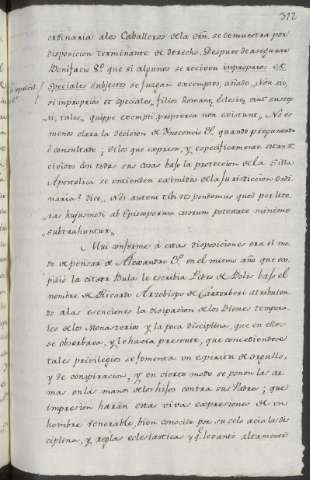 312
ordinaria a los Caballeros de la Orñ. se demuestra por
disposicion terminante de derecho. Despues de asegurar
Bonifacio 8º que si algunos se reciven impropios, et
speciales subjectos se juzgan exemptos, añade Non sic
si improprios et speciales filios Romanæ Eclesiæ eos susce-
pi, tales, quippe exempti propterea non existunt. No es
menos clara la decision de Inocencio 3º quando preguntado
ó consultado, si los que expresa, y especificamente estan re-
cividos con todas sus cosas bajo la proteccion de la Silla
Apostolica se entienden eximidos de la jurisdiccion ordi-
naria? dice Nos autem tibi respondemus quod per lite-
ras hujusmodi ab Episcoporum suorum potestate minimé
subtrahuntur.
Mui conforme á estas disposiciones era el mo-
do de pensar de Alexandro 3º en el mismo año que ex-
pidió la citada Bula le escribia Pedro de Blois bajo el
nombre de Ricardo Arzobispo de Cantorberi atribuien-
do a las esenciones la disipacion de los bienes tempora-
les de los Monasterios y la poca disciplina, que en ellos
se observaba, y le hacia presente, que concediendose
tales privilegios se fomenta un espiritu de orgullo,
y de conspiracion, y en cierto modo se ponen las ar-
mas en las manos de los hijos contra sus Padres; que
impresion harán estas vivas expresiones de un
hombre venerable, bien conocido por su celo acia la dis-
ciplina, y regla eclesiastica y qe. levantó altamente